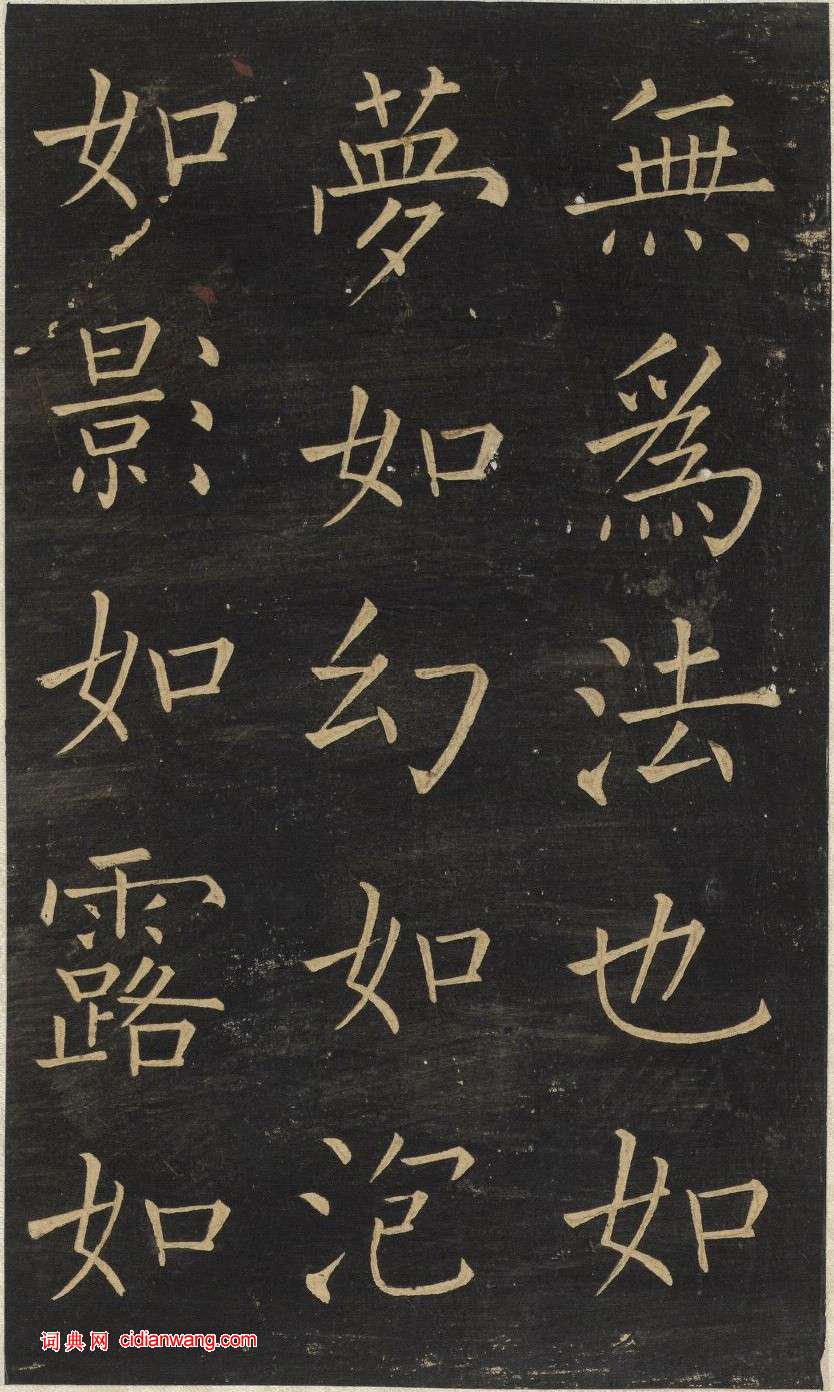 無爲法也如
夢如幻如泡
如影如露如
词典网 cidianwang.com